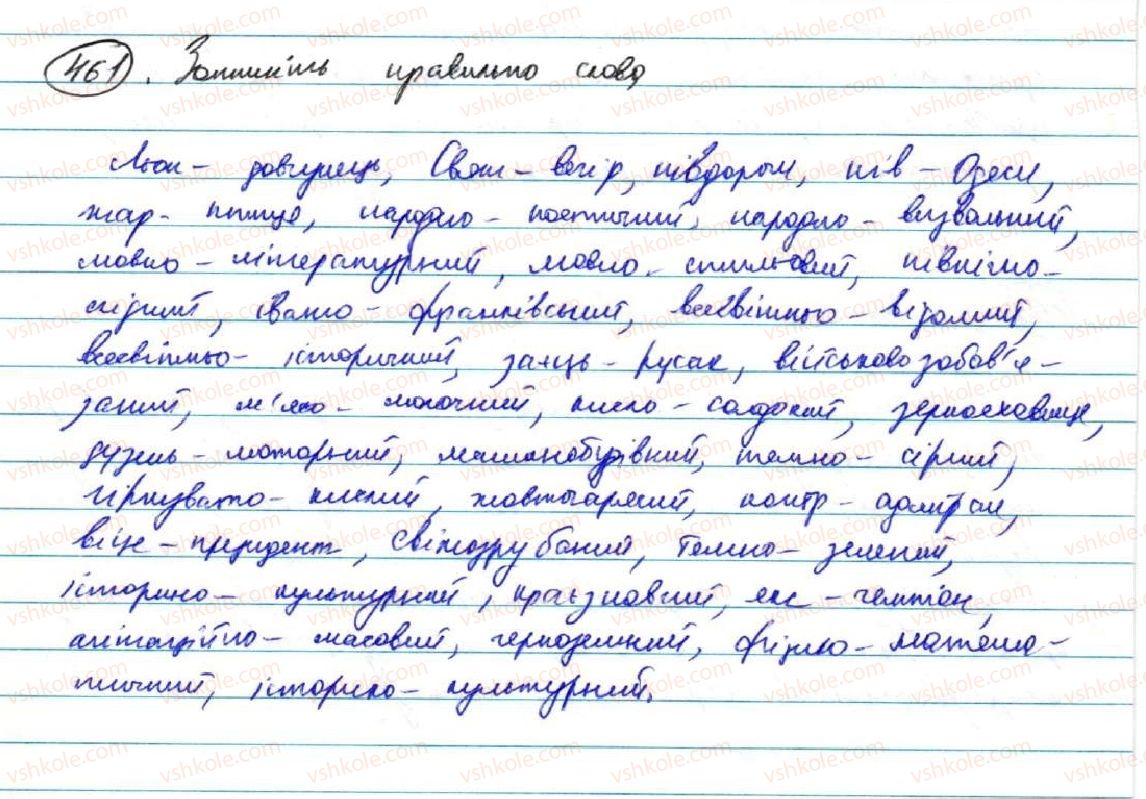 461. Запишіть правильно слова
Льон - довгунець, Свят - вечір, півдороги, пів - Одеси,
жар - птиця, народно - поетичний, народно - визвольний,
мовно - літературний, мовно - стильовий, північно-
східний, івано - франківський, всесвітньо - відомий,
всесвітньо - історичний, заєць - русак, військовозобов'я-
заний, м'ясо - молочний, кисло - солодкий, зерносховище,
дизель - моторний, машинобудівний, темно - сірий,
гіркувато - кислий, жовтогарячий, контр - адмірал,
віце - президент, свіжозрубаний, темно - зелений,
історико - культурний, краєзнавчий, екс - чемпіон,
агітаційно - масовий, чорноземний, фізико - матема-
тичний, історико - культурний.
vshkole.com